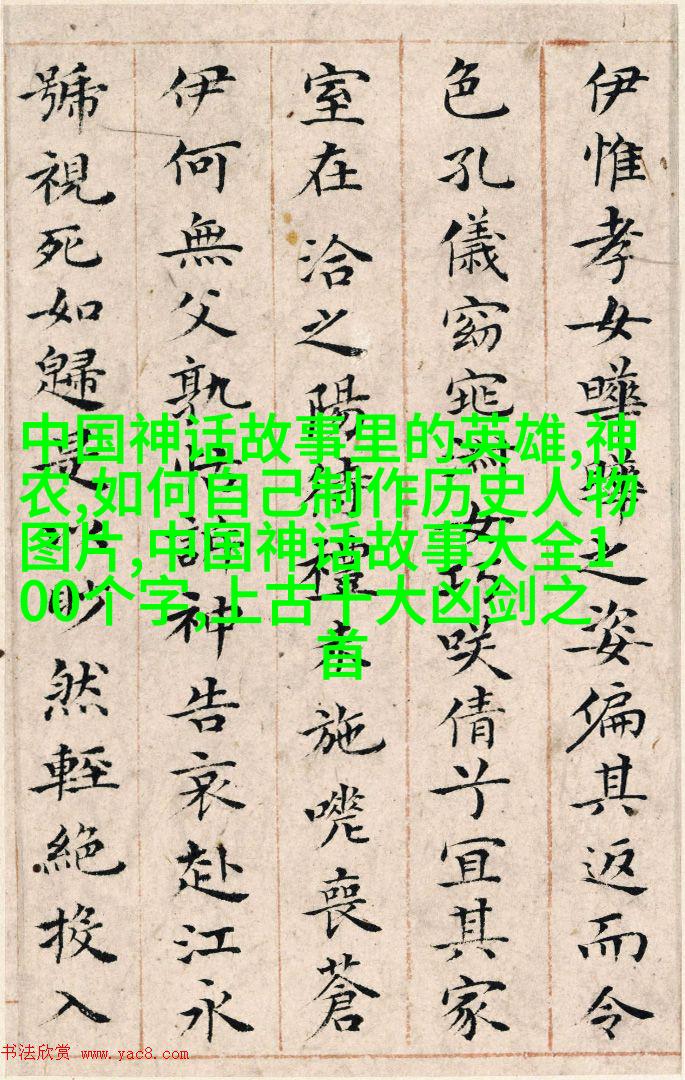 伊惟孝女曄曄之姿偏其返而令
色孔儀窈窕淑女巧咲倩兮宜其家
室在洽之陽待禮未施嗟喪蒼
伊何無父孰怙訴神告哀赴江永
號視死如歸是以眇然輕絕投入
中国神话故事里的英雄,神
农,如何自己制作历史人物
图片,中国神话故事大全1
00个字,上古十大凶剑之
首
书法欣赏 www.yac8.com